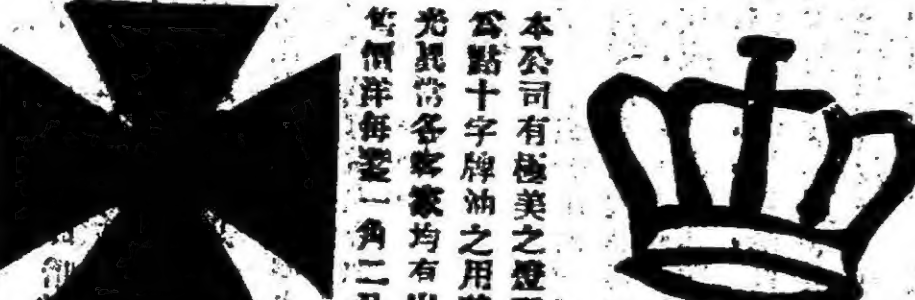 本公司有極美之燈
為點十字牌油之用
光異常各客家均有出
售價洋每盞一角二